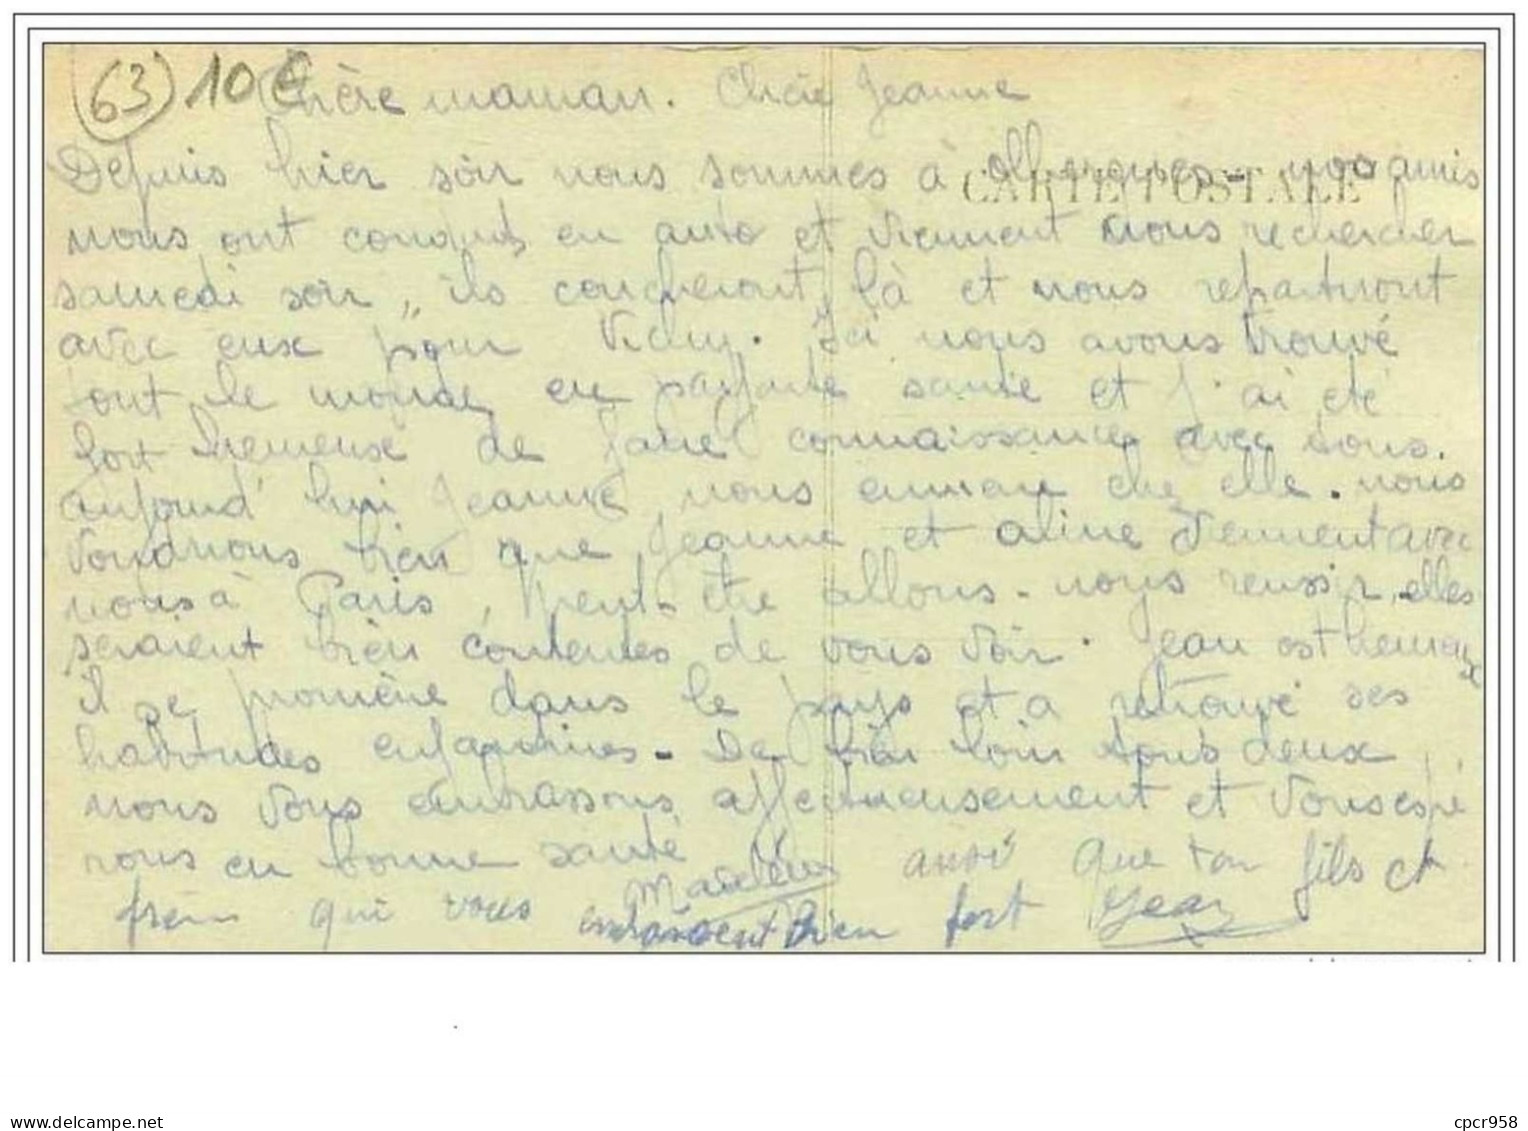 (63) 10 €
Chère maman. Chère Jeanne
CARTE POSTALE
Depuis hier soir nous sommes à olliergues - nos amis
nous ont conduits en auto et viennent nous rechercher
samedi soir, ils coucheront là et nous repartiront
avec eux pour Vichy. Ici nous avons trouvé
tout le monde en parfaite santé et j'ai été
fort heureuse de faire connaissance avec tous.
aujourd'hui Jeanne nous emmène chez elle. nous
voudrions bien que Jeanne et aline viennent avec
nous à Paris, peut-être allons-nous reussir, elles
seraient bien contentes de vous voir. Jean est heureux
il se promène dans le pays et a retrouvé ses
habitudes enfantines - De bien loin tous deux
nous vous embrassons affectueusement et vous espé
rons en bonne santé
Madeleine ainsi que ton fils et
frère qui vous embrassent bien fort Jean
delcampe.net
cpcr958